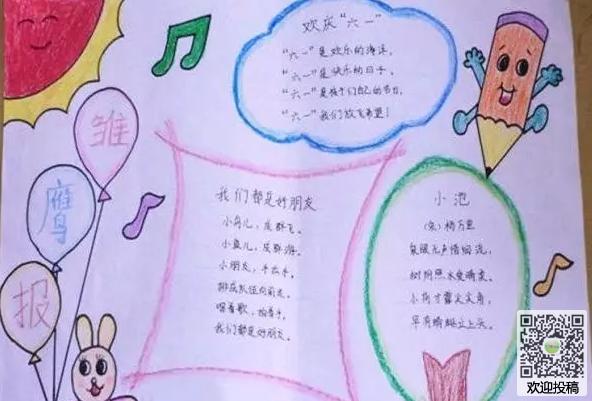 雏
鹰
报
欢庆“六一”
“六一”是欢乐的海洋,
“六一”是快乐的日子,
“六一”是孩子们自己的节日,
“六一”我们放飞希望!
我们都是好朋友
小鸟儿,成群飞。
小鱼儿,成群游。
小朋友,手拉手。
排成队伍向前走。
唱着歌,拍着手,
我们都是好朋友。
小池
(宋)杨万里
泉眼无声惜细流,
树阴照水爱晴柔。
小荷才露尖尖角,
早有蜻蜓立上头。
欢迎投稿